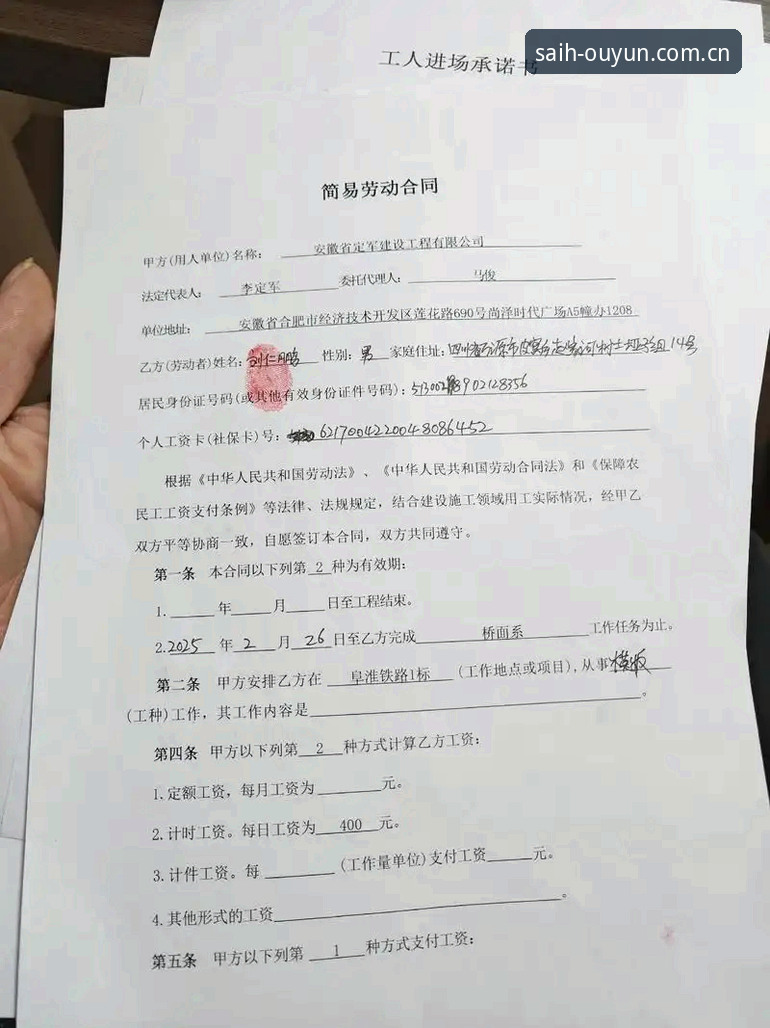 saih-ouyun.com.cn
工人进场承诺书
简易劳动合同
甲方(用人单位)名称: 安徽省定军建设工程有限公司
法定代表人: 李定军 委托代理人: 马俊
单位地址: 安徽省合肥市经济技术开发区莲花路690号尚泽时代广场A5幢办1208
乙方(劳动者)姓名: 刘仁鹏 性别: 男 家庭住址: 四川省 源市 村 组14号
居民身份证号码(或其他有效身份证件号码):
个人工资卡(社保卡)号: 6217004220048086452
根据《中华人民共和国劳动法》、《中华人民共和国劳动合同法》和《保障农
民工工资支付条例》等法律、法规规定, 结合建设施工领域用工实际情况, 经甲乙
双方平等协商一致, 自愿签订本合同, 双方共同遵守。
第一条 本合同以下列第 2 种为有效期:
1. 年 月 日至工程结束。
2. 2025 年 2 月 26 日至乙方完成 桥面系 工作任务为止。
第二条 甲方安排乙方在 阜淮铁路1标 (工作地点或项目), 从事 模板
(工种)工作, 其工作内容是 。
第四条 甲方以下列第 2 种方式计算乙方工资:
1. 定额工资, 每月工资为 元。
2. 计时工资。每日工资为 400 元。
3. 计件工资。每 (工作量单位)支付工资 元。
4. 其他形式的工资 。
第五条 甲方以下列第 1 种方式支付工资: